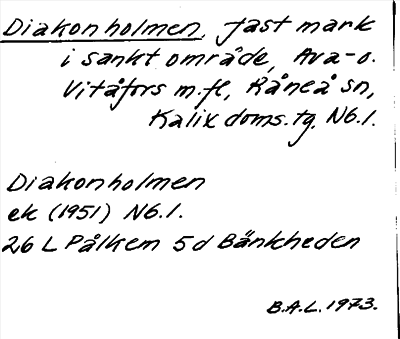 Diakonholmen, fast mark
i sankt område, Ava-o.
Vitåfors m.fl, Råneå sn,
Kalix doms.tg. Nb.l.
Diakonholmen
ek (1951) Nb.l.
26 L Pålkem 5 d Bänkheden
B.A.L. 1973.